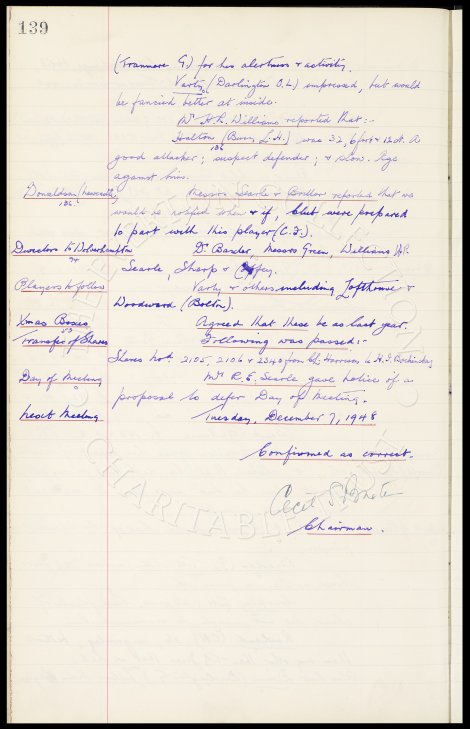 139
(Tranmere G.) for his alertness & activity.
Varty (Darlington O.L.) impressed, but would
be fancied better at inside.
Mr. H.R. Williams reported that:-
Halton (Bury L.H.) was 32, 6 foot & 12 st. A
136
good attacker; suspect defender; & slow. Age
against him.
Donaldson (Newcastle) Messrs Searle & Booker reported that we
136
would be notified when & if, Club were prepared
to part with this player (C.F.).
Directors to Wolverhampton Dr. Baxter Messrs Green, Williams H.R.
Searle, Sharp & Coffey.
Players to follow Varty & others including Lofthouse &
Woodward (Bolton).
Xmas Boxes Agreed that these be as last year.
Transfer of Shares Following was passed:-
Shares Nos. 2105, 2106 & 2340 from C.J. Harrison to H.I.
Day of Meeting Mr. R.E. Searle gave notice of a
proposal to defer Day of Meeting.
Next Meeting Tuesday, December 7, 1948
Confirmed as correct.
Cecil S. Baxter
Chairman.
CHARITABLE TRUST